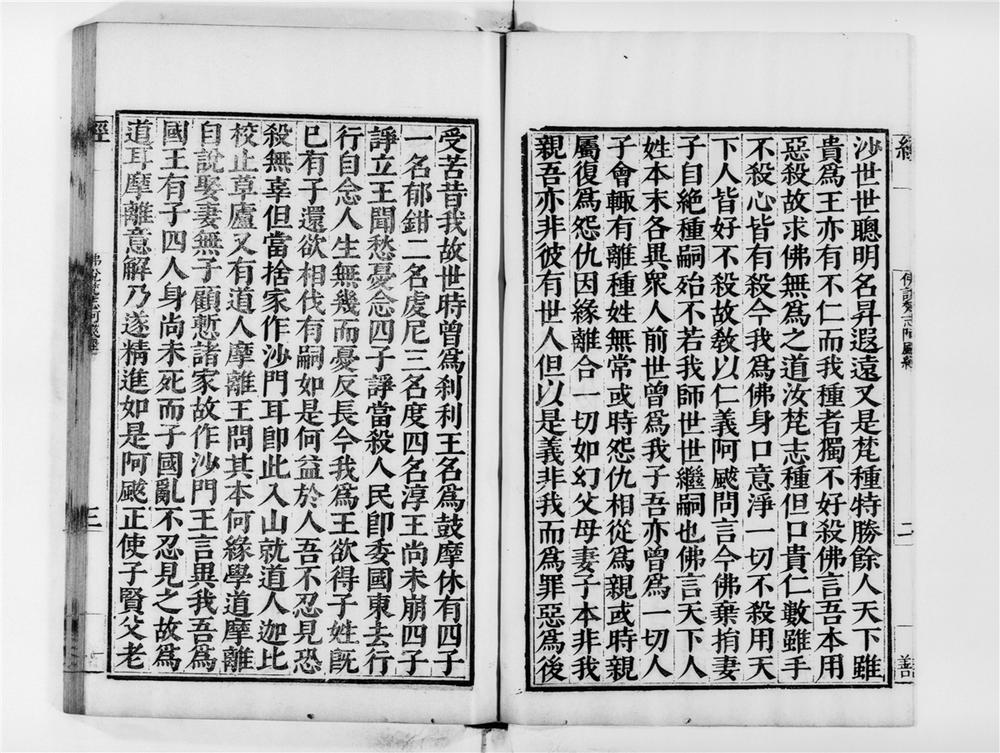 沙世世聰明名昇遐遠又是梵種特勝餘人天下雖
貴爲王亦有不仁而我種者獨不好殺佛言吾本用
惡殺故求佛無爲之道汝梵志種但口貴仁數雖手
不殺心皆有殺今我爲佛身口意淨一切不殺用天
下人皆好不殺故敎以仁義阿颰問言今佛棄捐妻
子自絶種嗣殆不若我師世世繼嗣也佛言天下人
姓本末各異衆人前世曾爲我子吾亦曾爲一切人
子會輙有離種姓無常或時怨仇相從爲親或時親
屬復爲怨仇因緣離合一切如幻父母妻子本非我
親吾亦非彼有世人但以是義非我而爲罪惡爲後
二
善
受苦昔我故世時曾爲刹利王名爲鼓摩休有四子
一名郁鉗二名虔尼三名度四名淳王尚未崩四子
諍立王聞愁憂念四子諍當殺人民卽委國東去行
行自念人生無幾而憂反長今我爲王欲得子姓旣
已有子還欲相伐有嗣如是何益於人吾不忍見恐
殺無辜但當捨家作沙門耳卽此入山就道人迦比
校止草廬又有道人摩離王問其本何緣學道摩離
自說娶妻無子顧慙諸家故作沙門王言異我吾爲
國王有子四人身尚未死而子國亂不忍見之故爲
道耳摩離意解乃遂精進如是阿颰正使子賢父老
經
三